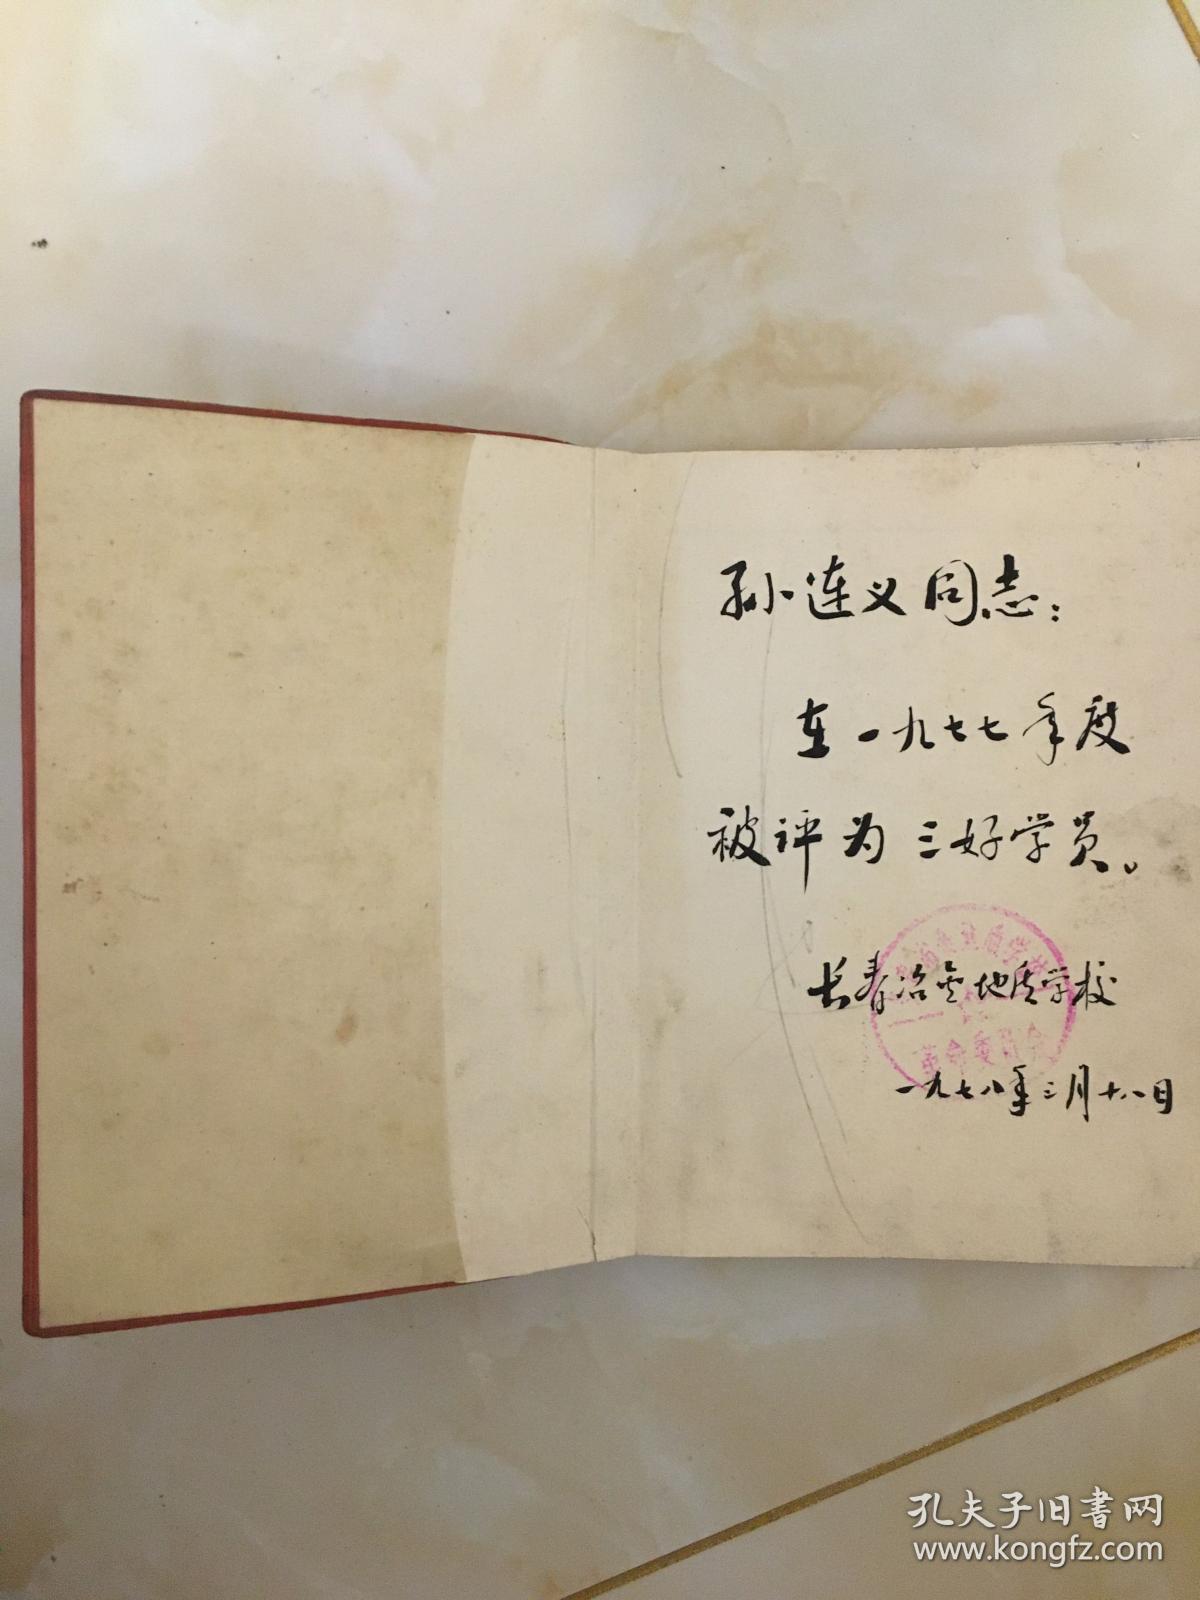 孙连义同志：
在一九七七年度
被评为三好学员。
长春冶金地质学校
革命委员会
一九七八年三月十八日
孔夫子旧书网
www.kongfz.com